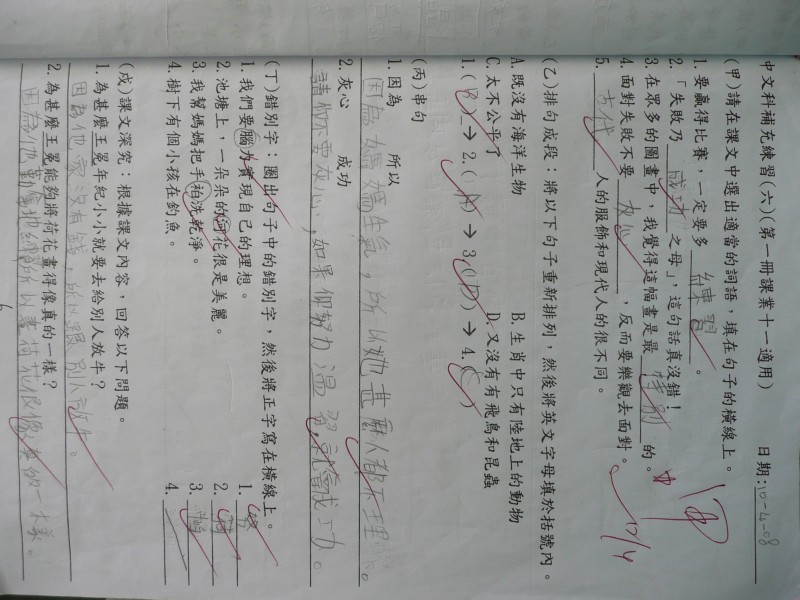 中文科補充練習(六)(第一冊課業十一適用)
日期:10-4-08
(甲)請在課文中選出適當的詞語，填在句子的橫線上。
1. 要贏得比賽，一定要多 練習 。
2. 「失敗乃 成功 之母」，這句話真沒錯！
3. 在眾多的圖畫中，我覺得這幅畫是最 特別 的。
4. 面對失敗不要 灰心 ，反而要樂觀去面對。
5. 古代 人的服飾和現代人的很不同。
(乙)排句成段：將以下句子重新排列，然後將英文字母填於括號內。
A. 既沒有海洋生物
B. 生肖中只有陸地上的動物
C. 太不公平了
D. 又沒有有飛鳥和昆蟲
1.(B)→2.(A)→3.(D)→4.(C)
(丙)串句
1. 因為 所以
因為媽媽生氣，所以她甚麼人都不理。
2. 灰心 成功
請你不要灰心，如果你努力溫習，就會成功。
(丁)錯別字：圈出句子中的錯別字，然後將正字寫在橫線上。
1. 我們要腦力實現自己的理想。
1.
2. 池塘上，一朵朵的河花很是美麗。
2. 荷
3. 我幫媽媽把手袙洗乾淨。
3.
4. 樹下有個小孩在釣魚。
4.
(戊)課文深究：根據課文內容，回答以下問題。
1. 為甚麼王冕年紀小小就要去給別人放牛？
因為他家沒有錢，所以跟別人放牛。
2. 為甚麼王冕能夠將荷花畫得像真的一樣？
因為他勤奮地練習所以畫荷花很像真的一樣。
甲
10/4